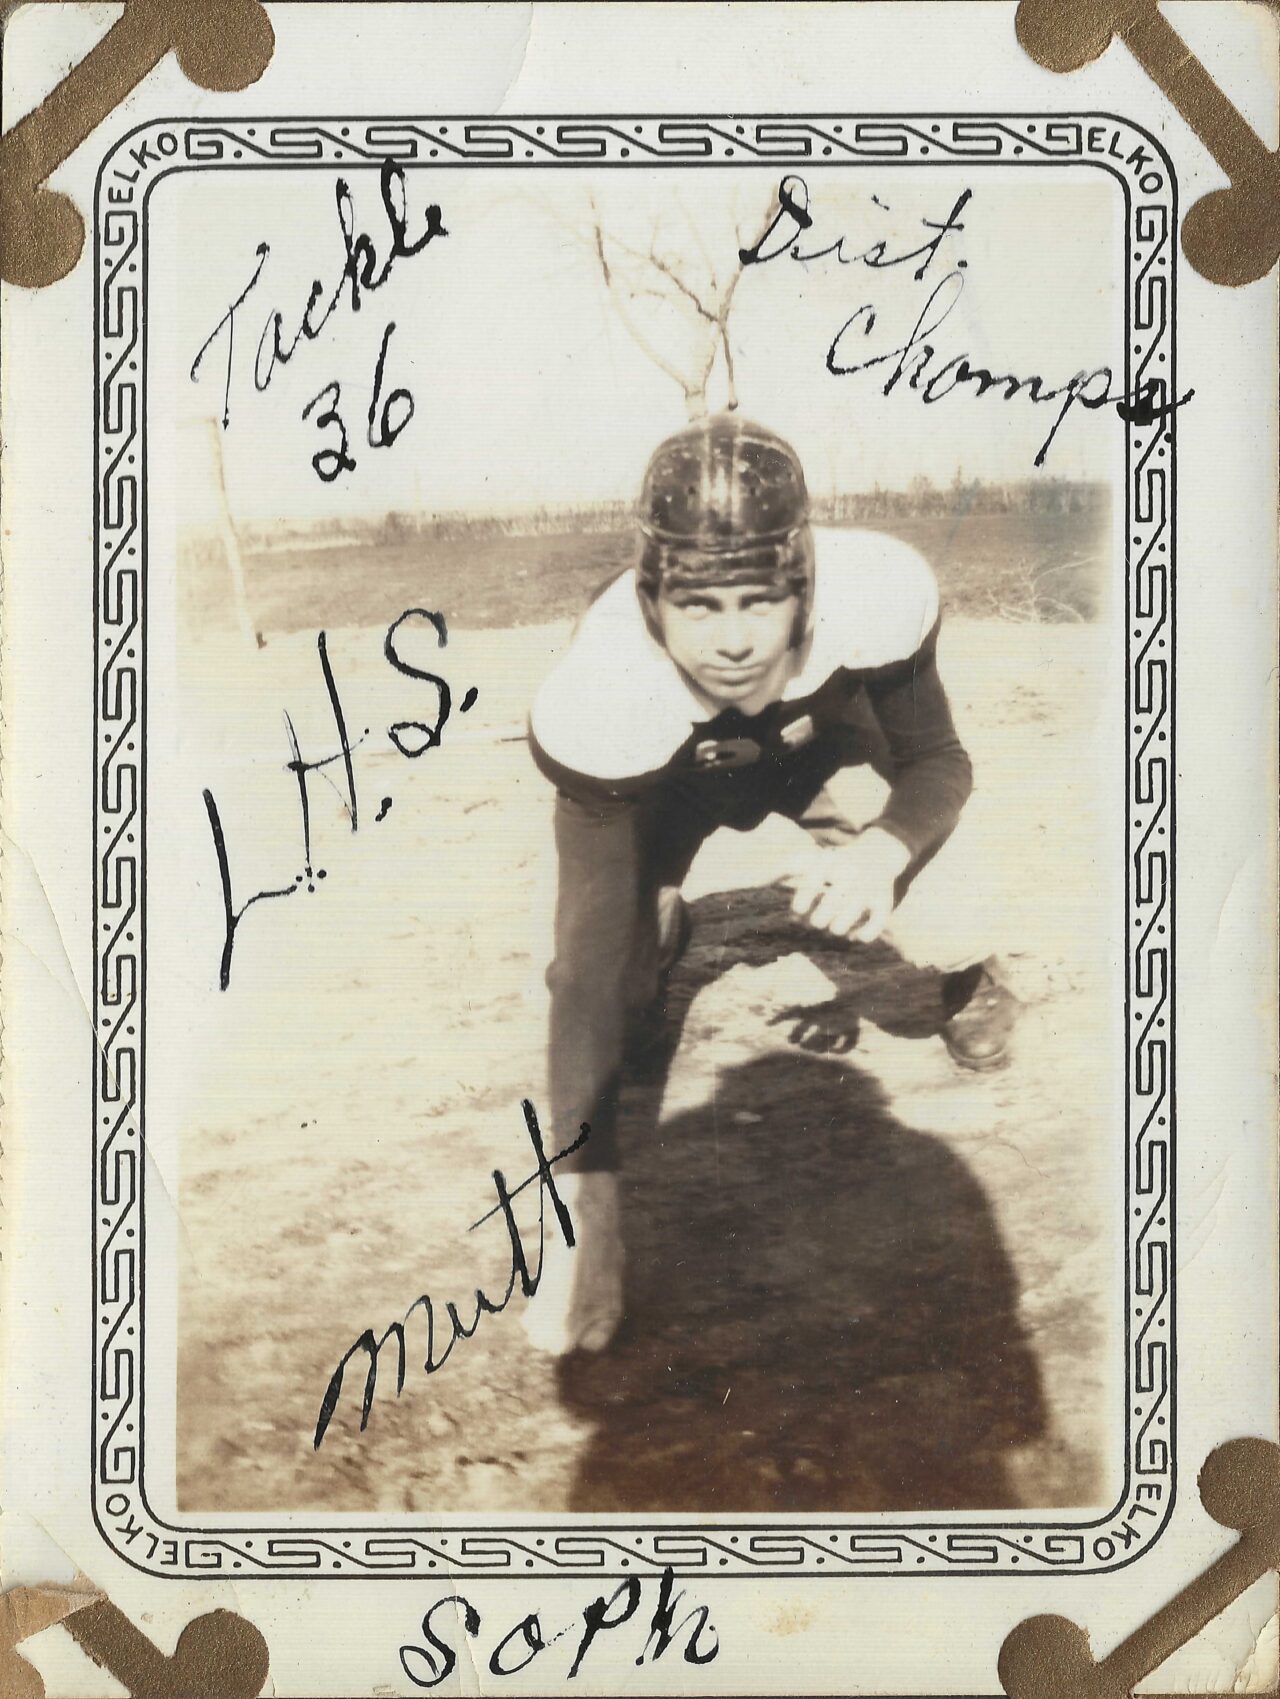 ELKO
ELKO
Tackle
36
Dist.
Champs.
L.H.S.
Mutt
ELKO
ELKO
Soph